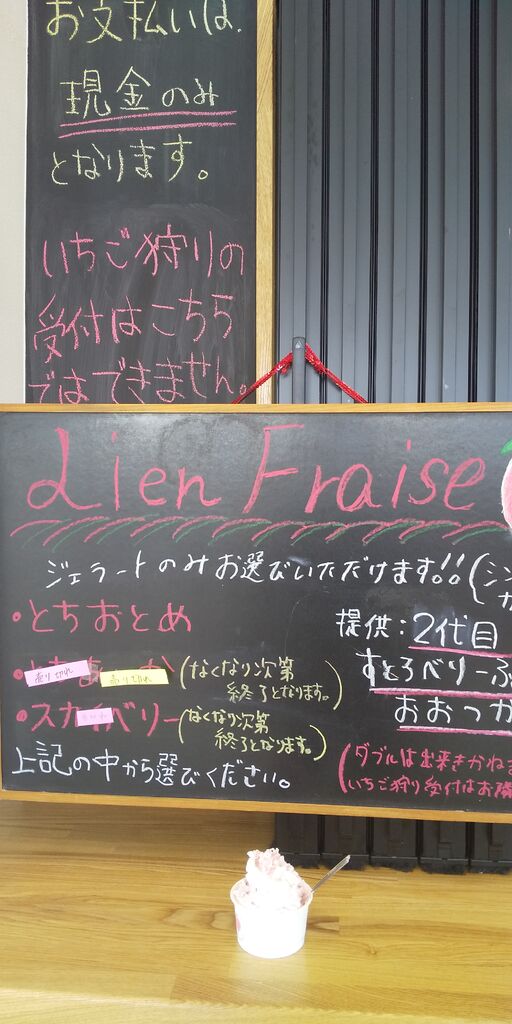 お支払いは、
現金のみ
となります。
いちご狩りの
受付はこちら
ではできません。
Lien Fraise
ジェラートのみお選びいただけます!!(シン
カ
・とちおとめ
提供:2代目
売り切れ 売り切れ (なくなり次第
終了となります。)
すとろべりーふ
・スカイベリー(なくなり次第
終了となります。)
おおつか
上記の中から選びください。
(ダブルは出来きかねま
いちご狩り受付はお隣